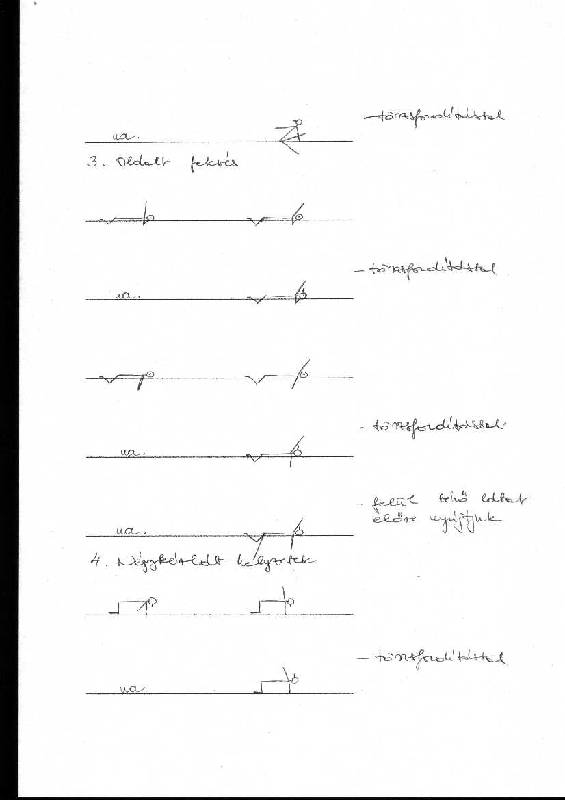 – törzsfordítással
ua.
3. Oldalt fekvés
– törzsfordítással
ua.
– törzsfordítással
ua.
– felül lévő lábat
ua.
előre nyújtjuk
4. Négykézláb helyzetek
– törzsfordítással
ua.